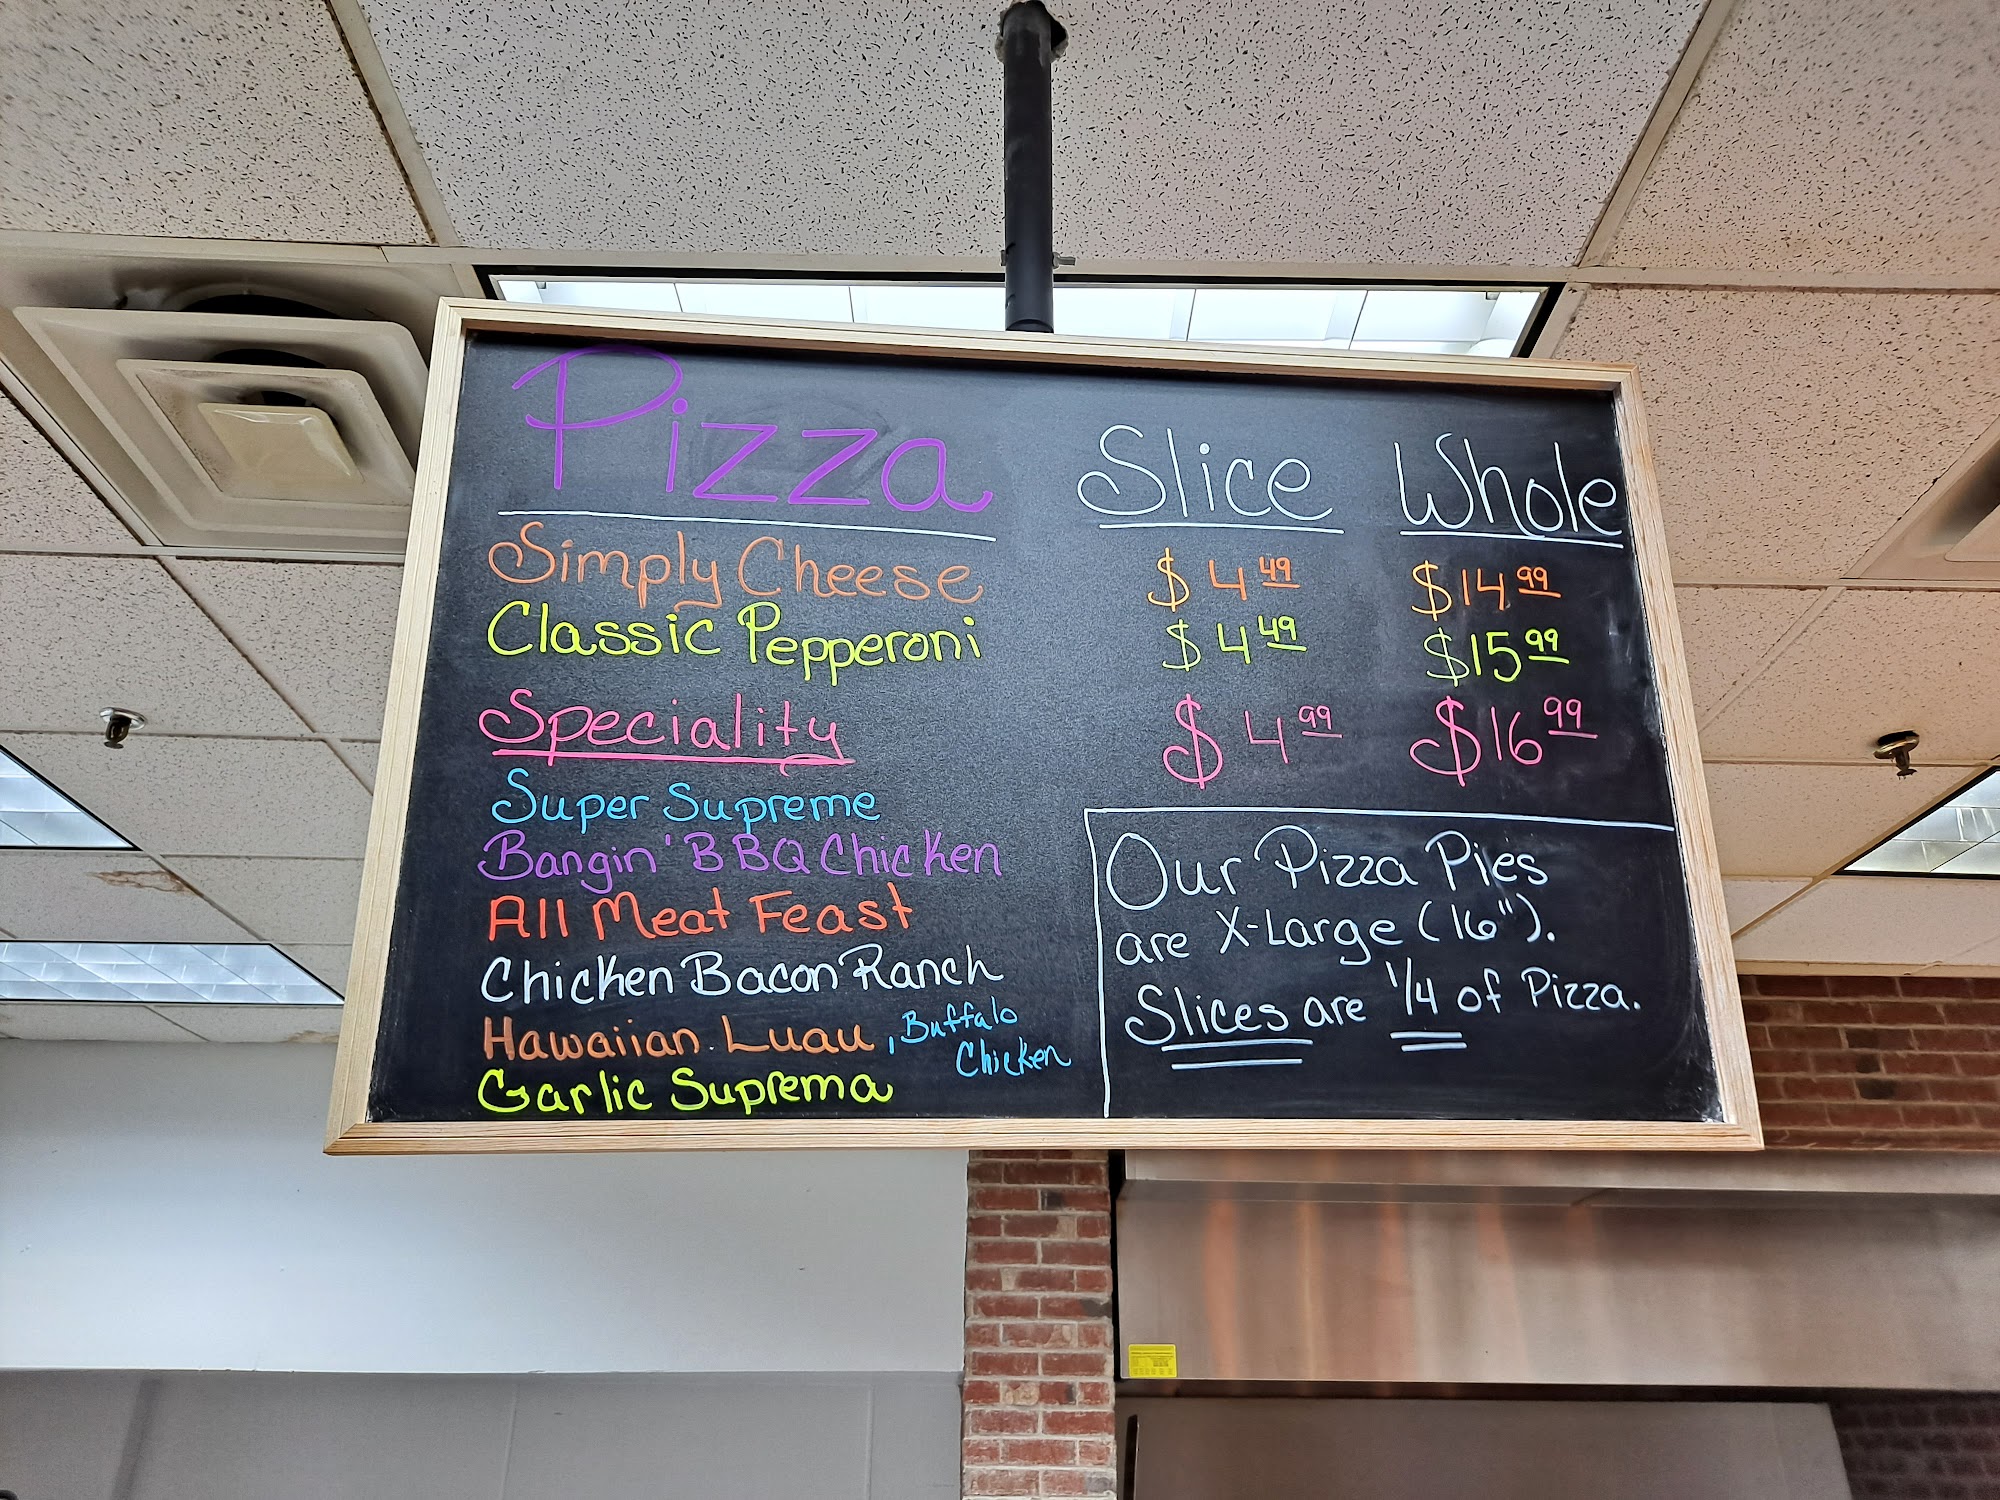 Pizza Slice Whole
Simply Cheese $4.49 $14.99
Classic Pepperoni $4.49 $15.99
Speciality $4.99 $16.99
Super Supreme
Bangin' BBQ Chicken
All Meat Feast
Chicken Bacon Ranch
Hawaiian Luau, Buffalo
Chicken
Garlic Suprema
Our Pizza Pies
are X-Large (16").
Slices are 1/4 of Pizza.